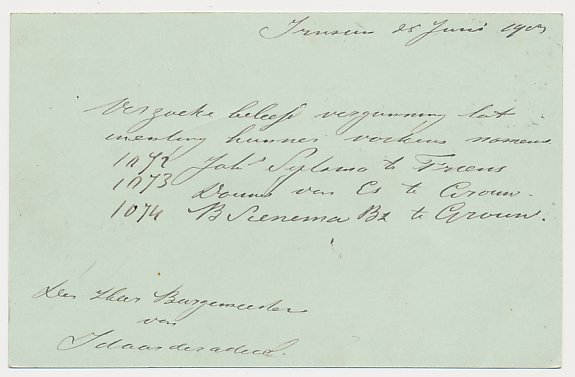 Irnsum 25 Juni 1903
Verzoeke beleefd vergunning tot
inenting hunner varkens namens
1072 Joh.s Sylsma te Friens
1073 Douwe van Es te Grouw.
1074 B Sienema Bz te Grouw.
Den Heer Burgemeester
van
Idaarderadeel.